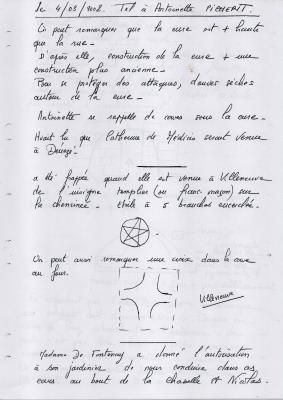 Le 4/08/2008. Tel à Antoinette PICHERIT.
On peut remarquer que la cure est + haute
que la rue -
D'après elle, construction de la cure + une
construction plus ancienne -
Pour se protéger des attaques, douves sèches
autour de la cure -
Antoinette se rappelle de caves sous la cure -
Avait lu que Catherine de Médicis serait venue
à
a été frappée quand elle est venue à Villeneuve
de l'insigne templier (ou franc-maçon) sur
la cheminée - étoile à 5 branches encerclée.
On peut aussi remarquer une croix dans la cave
au four.
Villeneuve
Madame De Fontenay a donné l'autorisation
à son jardinier de pour conduire dans
caves au bout de la Chapelle St Nicolas -